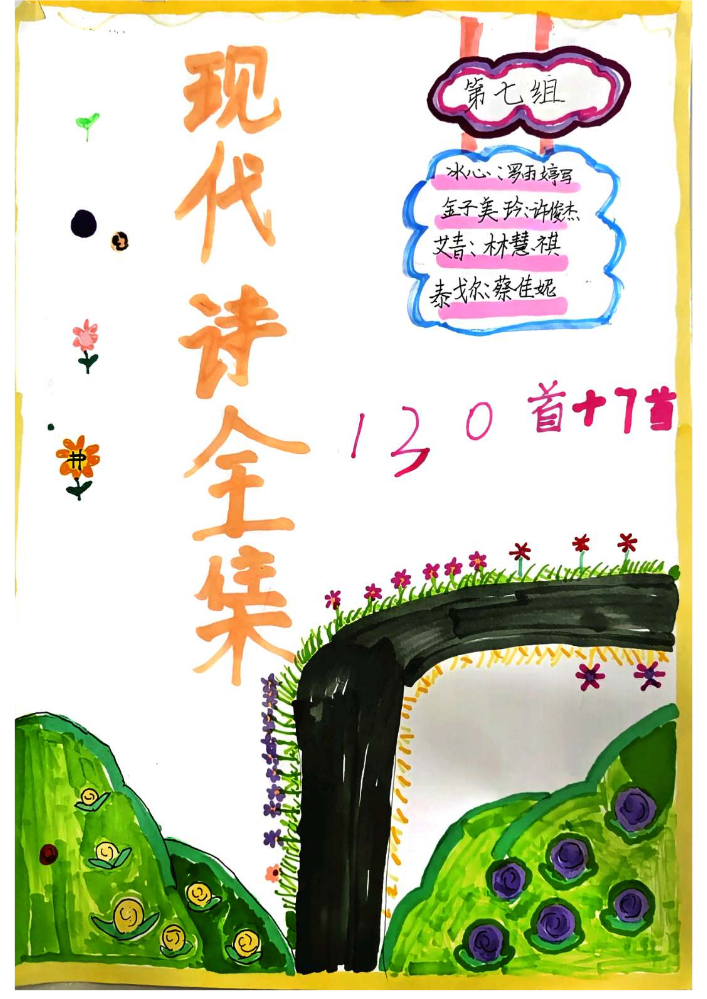 现代诗全集
第七组
冰心：罗雨婷写
金子美玲：许俊杰
艾青：林慧祺
泰戈尔：蔡佳妮
130首+7首